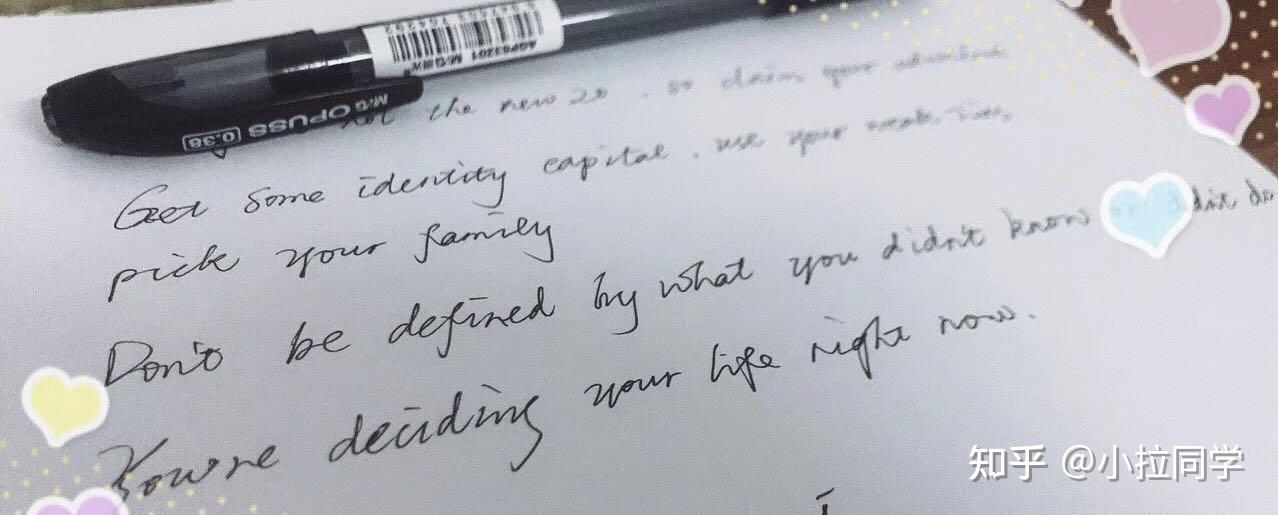 AGP63201 M&G 晨光
M&G OPUSS 0.38
not the new 20. so claim your adulthood
Get some identity capital. use your weak ties,
pick your family
Don't be defined by what you didn't know or didn't do
You're deciding your life right now.
知乎 @小拉同学